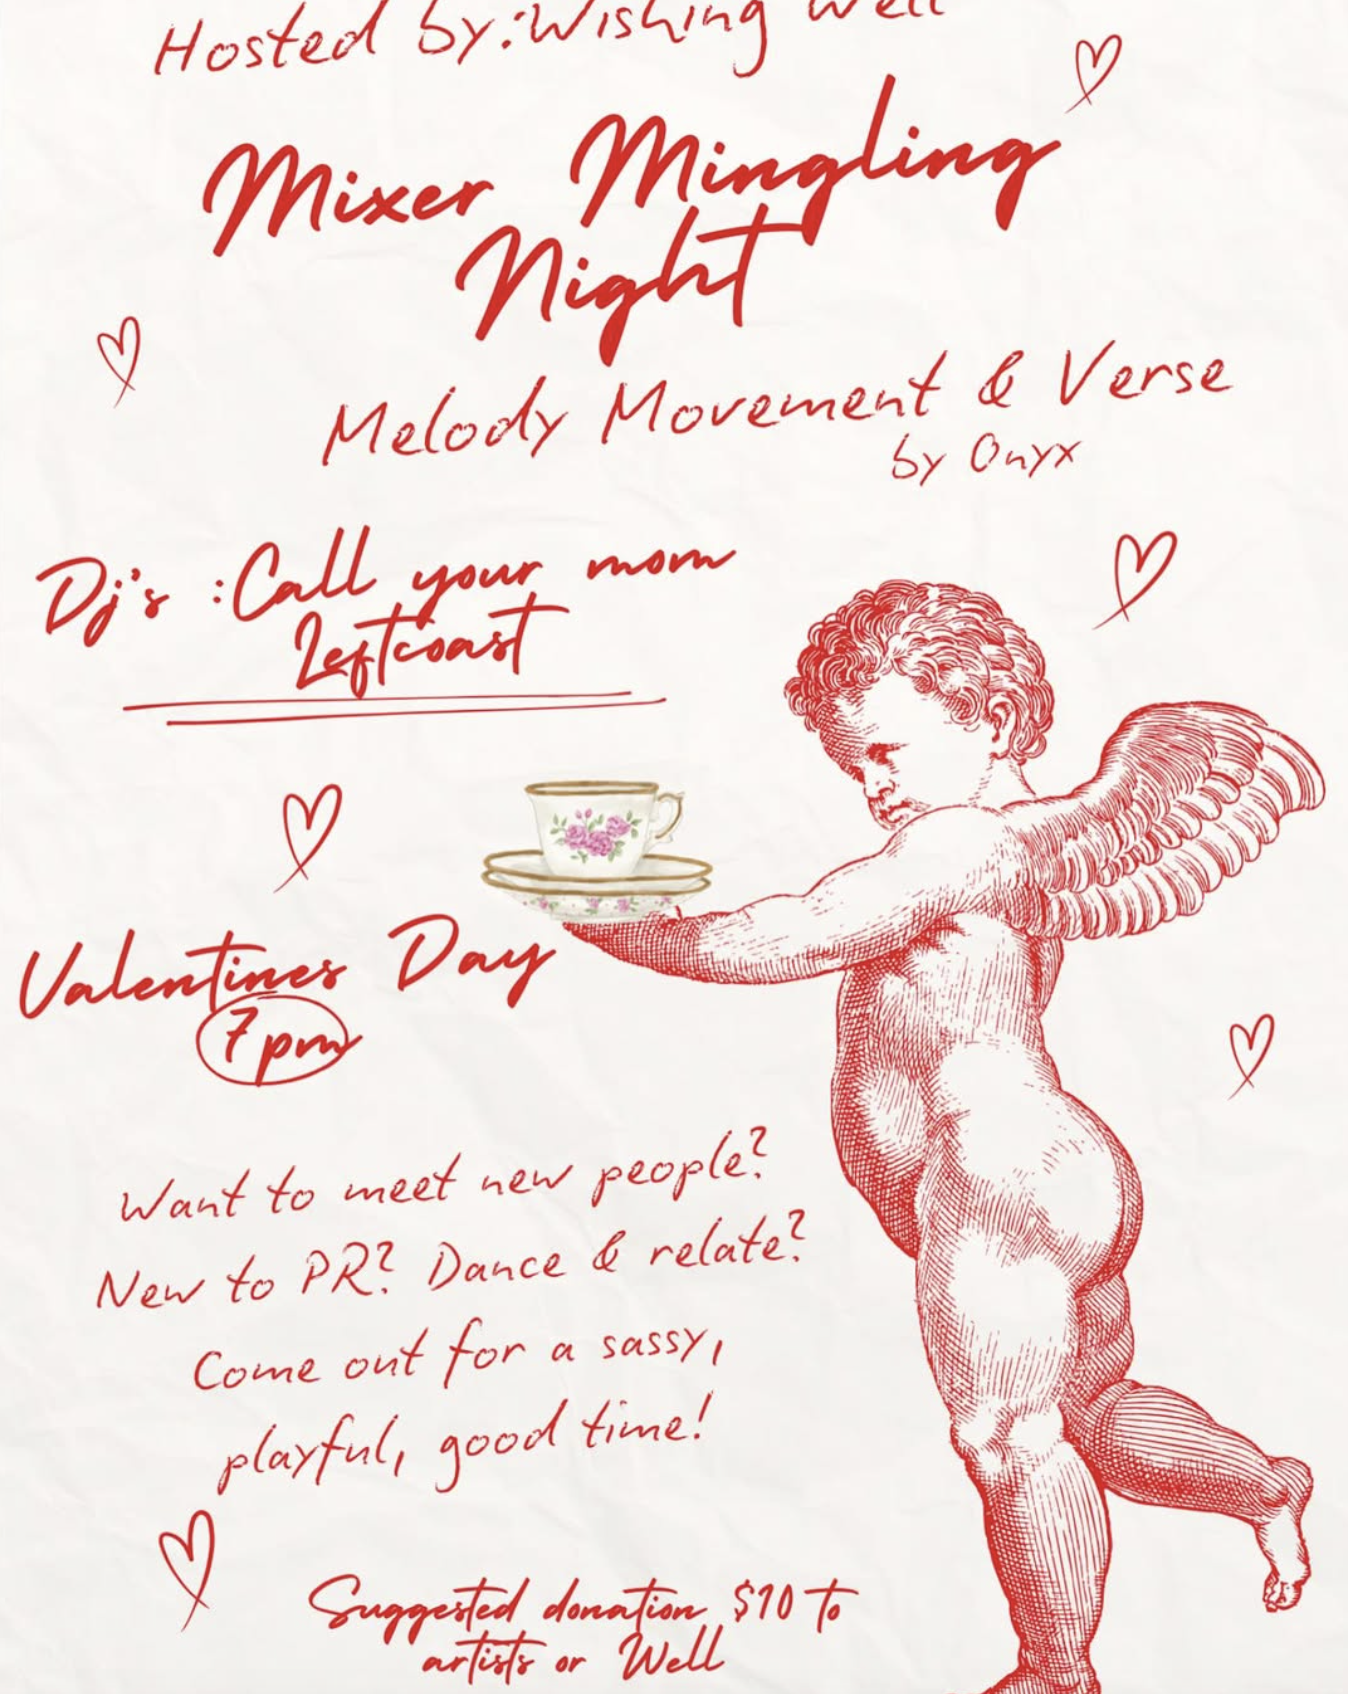 Hosted by:Wishing Well
Mixer Mingling
Night
Melody Movement & Verse
by Onyx
Dj's :Call your mom
Leftcoast
Valentines Day
7pm
Want to meet new people?
New to PR? Dance & relate?
Come out for a sassy,
playful, good time!
Suggested donation $10 to
artists or Well